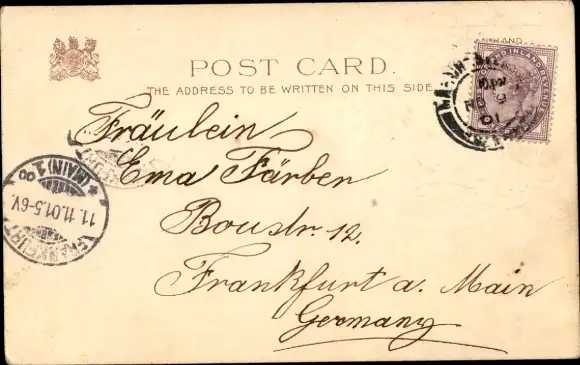 POST CARD.
THE ADDRESS TO BE WRITTEN ON THIS SIDE
POSTAGE AND INLAND REVENUE
Fräulein
Ema Färben
Boustr. 12.
Frankfurt a. Main
Germany
FRANKFURT (MAIN) 1
11.11.01.5-6V.